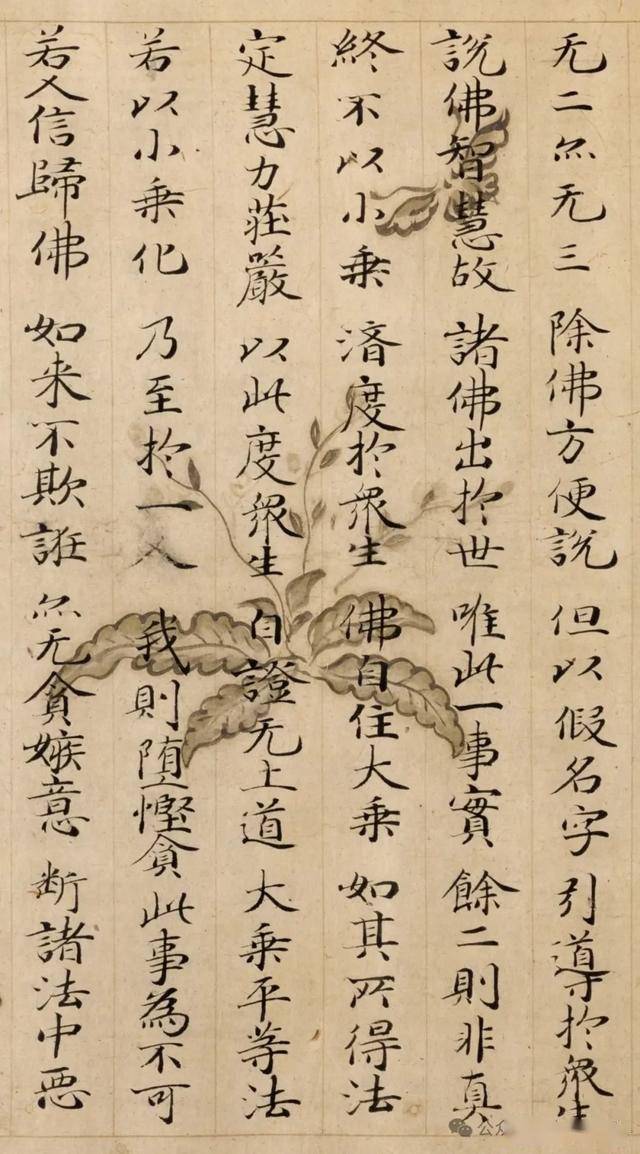 无二亦无三 除佛方便說 但以假名字 引導於衆生
說佛智慧故 諸佛出於世 唯此一事實 餘二則非真
終不以小乗 済度於衆生 佛自住大乗 如其所得法
定慧力莊嚴 以此度衆生 自證无上道 大乗平等法
若以小乗化 乃至於一人 我則堕慳貪 此事為不可
若人信歸佛 如来不欺誑 亦无貪嫉意 断諸法中悪
公众